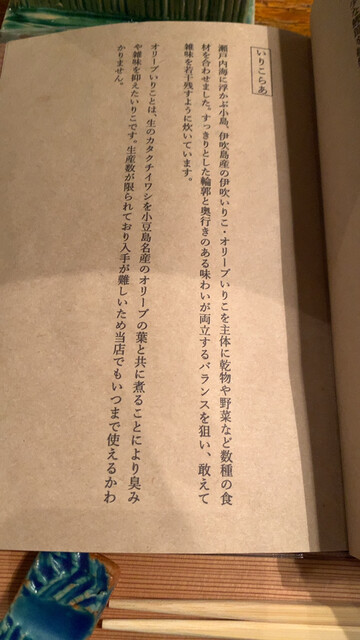 いりこらあ
瀬戸内海に浮かぶ小島、伊吹島産の伊吹いりこ・オリーブいりこを主体に乾物や野菜など数種の食
材を合わせました。すっきりとした輪郭と奥行きのある味わいが両立するバランスを狙い、敢えて
雑味を若干残すように炊いています。
オリーブいりことは、生のカタクチイワシを小豆島名産のオリーブの葉と共に煮ることにより臭み
や雑味を抑えたいりこです。生産数が限られており入手が難しいため当店でもいつまで使えるかわ
かりません。